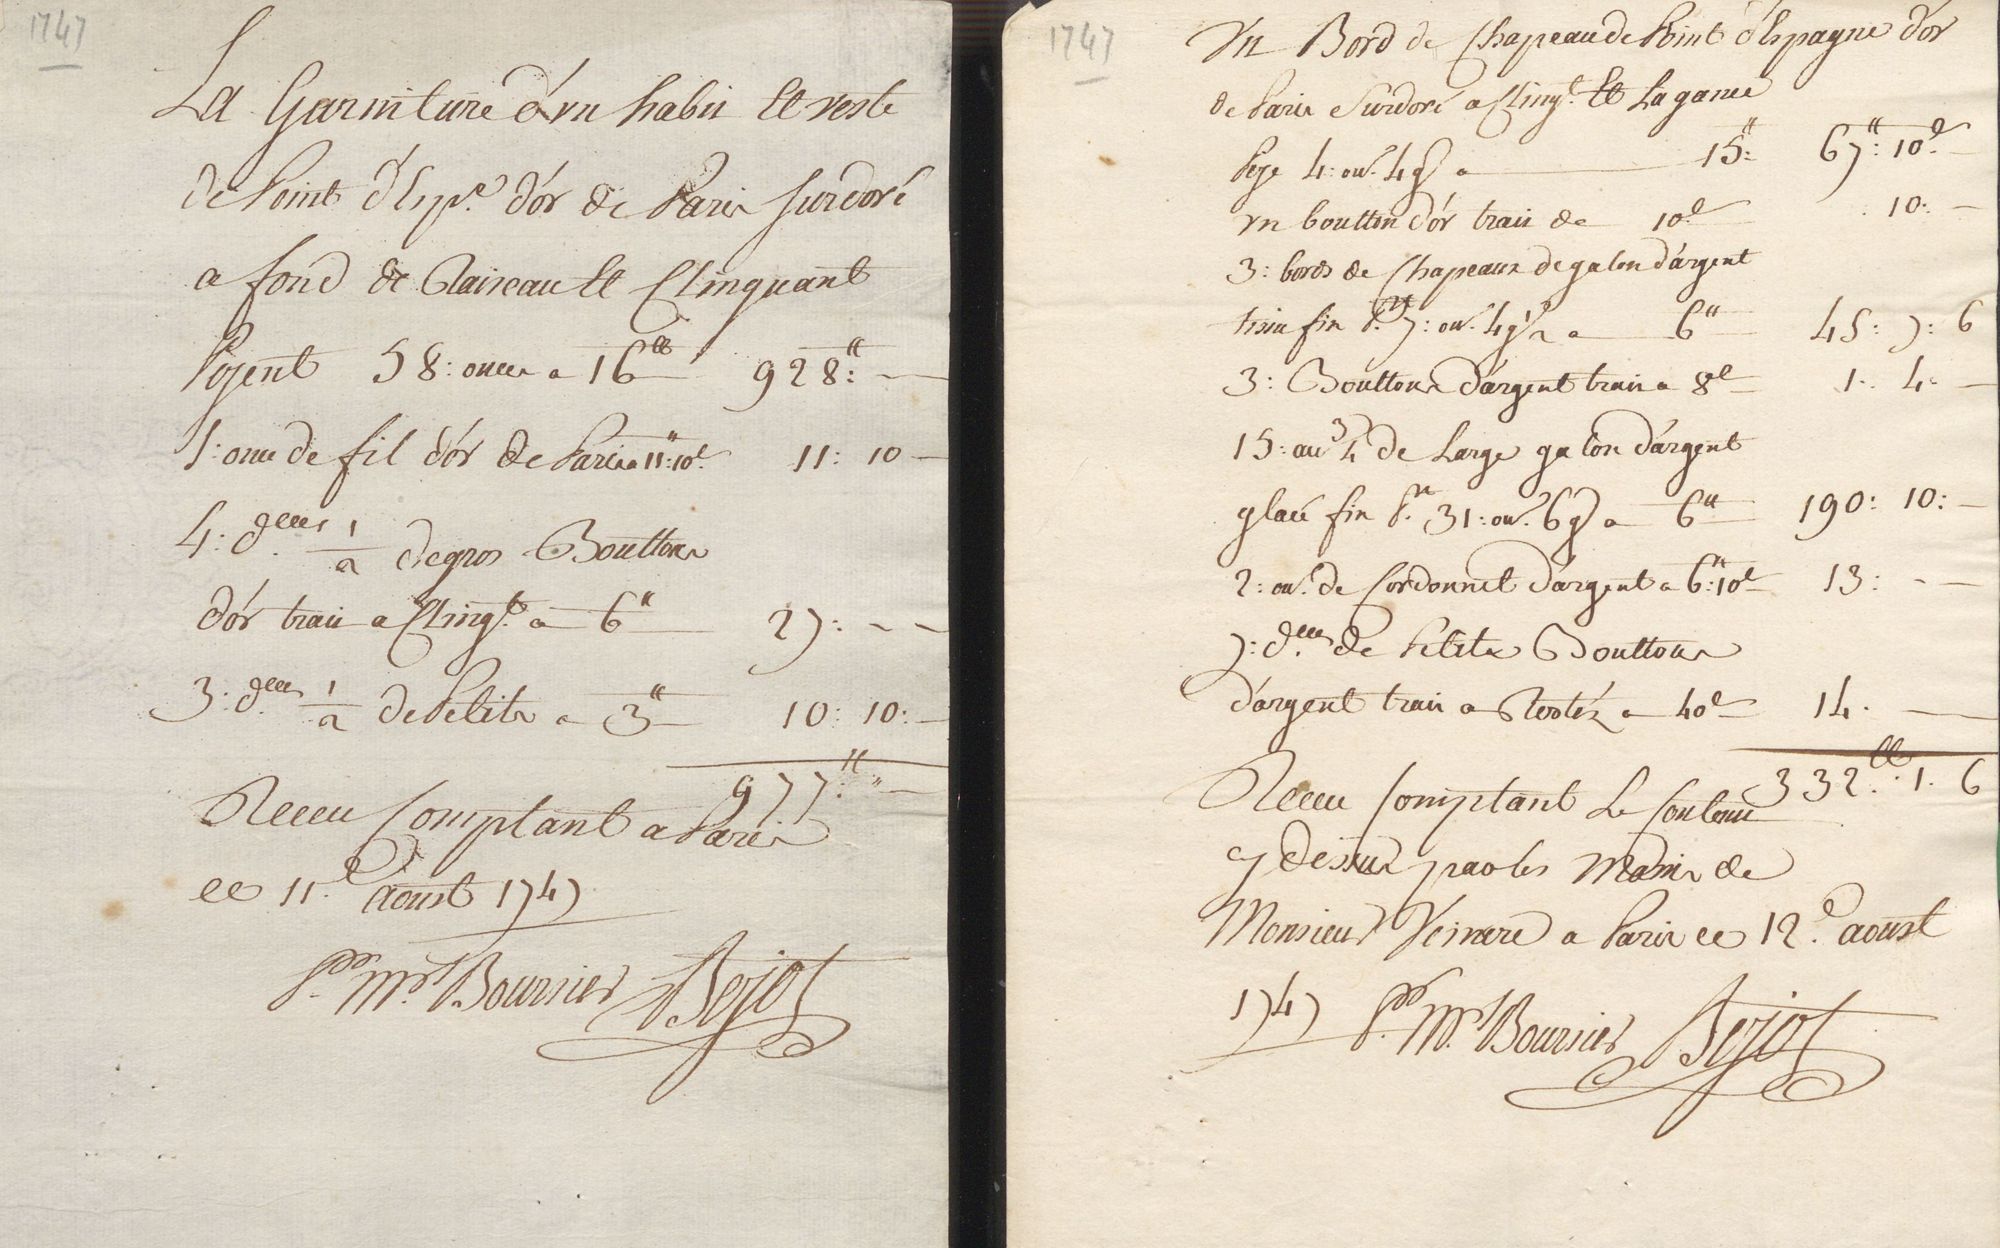 1747
La Garniture d'un habit Et veste
de Point d'Esp.e d'or de Paris surdoré
a fond de Raiseau Et Clinquant
Pezent 58: onces a 16ll 928:ll —
1: once de fil d'or de Paris a 11ll:10s 11: 10 —
4: d.nes 1/2 de gros Bouttons
d'or trait a Cling.t a 6ll 27: — —
3: d.nes 1/2 de Petits a 3ll 10: 10: —
977:ll " —
Receu Comptant a Paris
ce 11.e aoust 1747
P.r Mr Boursier Bejot
1747
Un Bord de Chapeau de Point d'Espagne d'or
de Paris Surdoré a Cling.t Et La gance
Peze 4: on. 4g a 15ll: 67ll: 10s —
un boutton d'or trait de 10s : 10: —
3: bords de Chapeaux de galon d'argent
fin P.nt 7: on. 4g 1/2 a 6ll 45: 7: 6
3: Bouttons d'argent trait a 8s 1: 4: —
15: au 3/4 de Large galon d'argent
glacé fin P.nt 31: on. 6g a 6ll 190: 10: —
2: on. de Cordonnet d'argent a 6ll:10s 13: — —
7: d.nes de Petits Bouttons
d'argent trait a a 40s 14: —
332ll: 1: 6
Receu Comptant Le Contenu
cy dessus par les mains de
Monsieur a Paris ce 12.e aoust
1747 P.r Mr Boursier Bejot